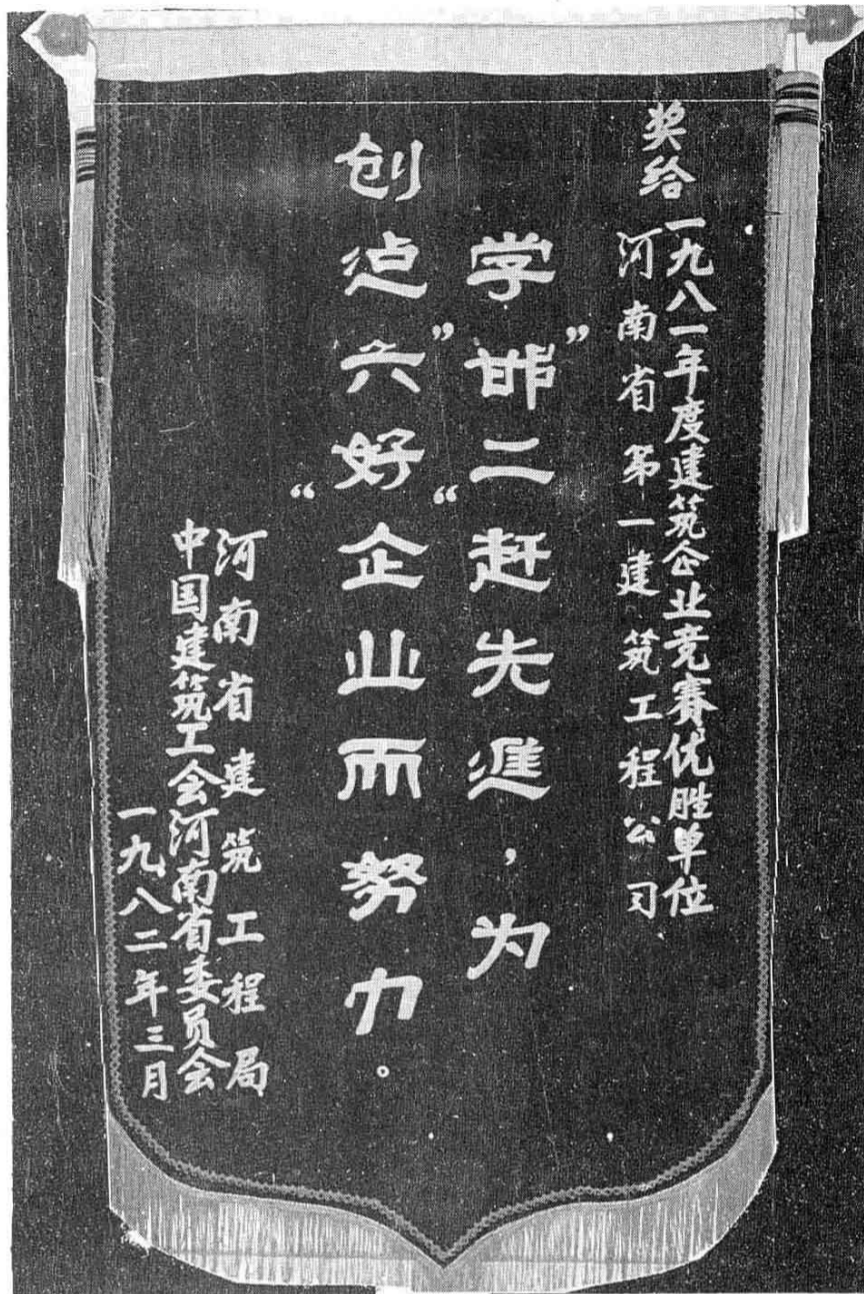 奖给 一九八一年度建筑企业竞赛优胜单位
河南省第一建筑工程公司
学“邯二”赶先進，为
创迠“六好”企业而努力。
河南省建筑工程局
中国建筑工会河南省委员会
一九八二年三月